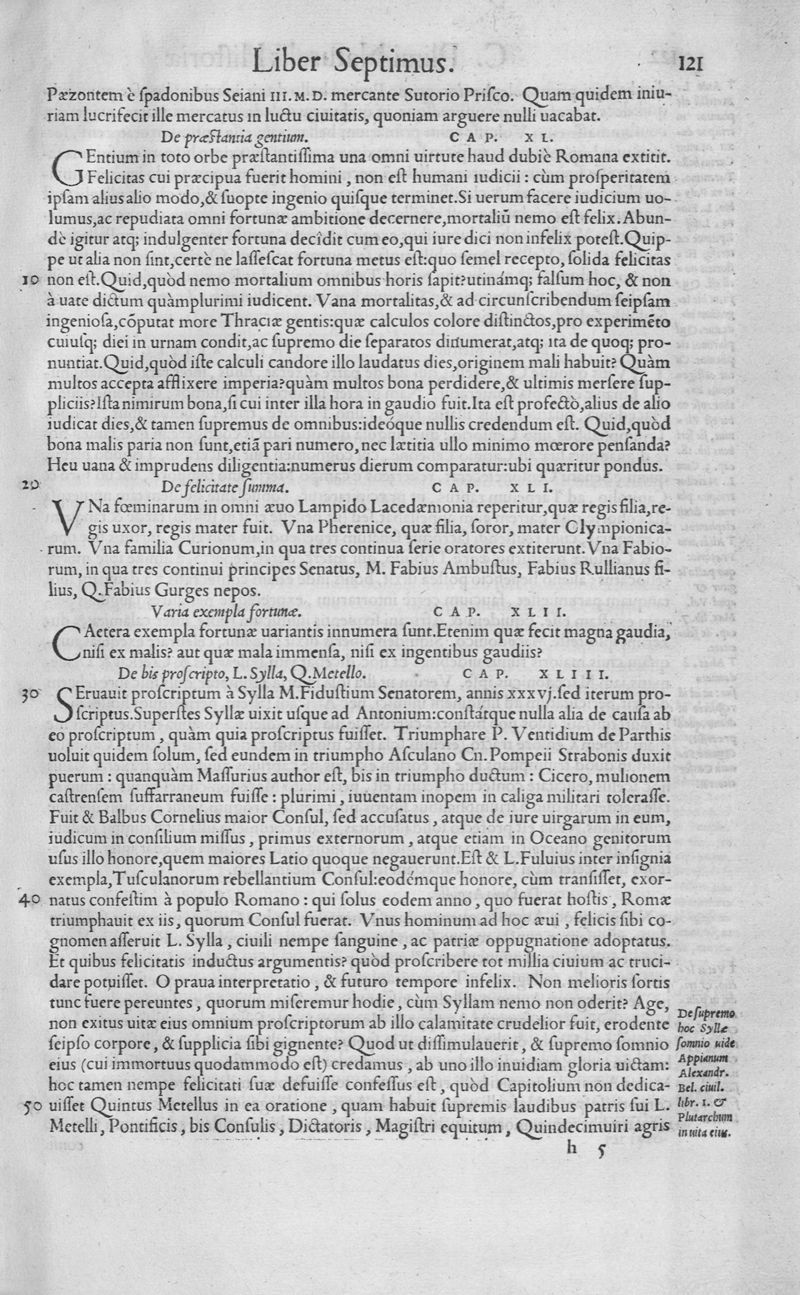 Liber Septimus. 121
Pæzontem è ſpadonibus Seiani III.M.D. mercante Sutorio Priſco. Quam quidem iniu-
riam lucrifecit ille mercatus in luctu ciuitatis, quoniam arguere nulli uacabat.
De præſtantia gentium. CAP. XL.
GEntium in toto orbe præſtantiſſima una omni uirtute haud dubiè Romana extitit.
Felicitas cui præcipua fuerit homini, non eſt humani iudicii: cùm proſperitatem
ipſam alius alio modo,& ſuopte ingenio quiſque terminet.Si uerum facere iudicium uo-
lumus,ac repudiata omni fortunæ ambitione decernere,mortaliũ nemo eſt felix.Abun-
dè igitur atq; indulgenter fortuna decîdit cum eo,qui iure dici non infelix poteſt.Quip-
pe ut alia non ſint,certè ne laſſeſcat fortuna metus eſt:quo ſemel recepto, ſolida felicitas
10 non eſt.Quid,quòd nemo mortalium omnibus horis ſapit?utinámq; falſum hoc, & non
à uate dictum quàmplurimi iudicent. Vana mortalitas,& ad circunſcribendum ſeipſam
ingenioſa,cōputat more Thraciæ gentis:quæ calculos colore diſtinctos,pro experimẽto
cuiuſq; diei in urnam condit,ac ſupremo die ſeparatos dinumerat,atq; ita de quoq; pro-
nuntiat.Quid,quòd iſte calculi candore illo laudatus dies,originem mali habuit? Quàm
multos accepta afflixere imperia?quàm multos bona perdidere,& ultimis merſere ſup-
pliciis?Iſta nimirum bona,ſi cui inter illa hora in gaudio fuit.Ita eſt profectò,alius de alio
iudicat dies,& tamen ſupremus de omnibus:ideóque nullis credendum eſt. Quid,quòd
bona malis paria non ſunt,etiã pari numero,nec lætitia ullo minimo mœrore penſanda?
Heu uana & imprudens diligentia:numerus dierum comparatur:ubi quæritur pondus.
20 De felicitate ſumma. CAP. XLI.
VNa fœminarum in omni æuo Lampido Lacedæmonia reperitur,quæ regis filia,re-
gis uxor, regis mater fuit. Vna Pherenice, quæ filia, ſoror, mater Olympionica-
rum. Vna familia Curionum,in qua tres continua ſerie oratores extiterunt.Vna Fabio-
rum, in qua tres continui principes Senatus, M. Fabius Ambuſtus, Fabius Rullianus fi-
lius, Q.Fabius Gurges nepos.
Varia exempla fortunæ. CAP. XLII.
CAetera exempla fortunæ uariantis innumera ſunt.Etenim quæ fecit magna gaudia,
niſi ex malis? aut quæ mala immenſa, niſi ex ingentibus gaudiis?
De bis proſcripto, L. Sylla, Q.Metello. CAP. XLIII.
30 SEruauit proſcriptum à Sylla M.Fiduſtium Senatorem, annis xxxvj.ſed iterum pro-
ſcriptus.Superſtes Syllæ uixit uſque ad Antonium:conſtátque nulla alia de cauſa ab
eo proſcriptum, quàm quia proſcriptus fuiſſet. Triumphare P. Ventidium de Parthis
uoluit quidem ſolum, ſed eundem in triumpho Aſculano Cn.Pompeii Strabonis duxit
puerum: quanquàm Maſſurius author eſt, bis in triumpho ductum: Cicero, mulionem
caſtrenſem ſuffarraneum fuiſſe: plurimi, iuuentam inopem in caliga militari toleraſſe.
Fuit & Balbus Cornelius maior Conſul, ſed accuſatus, atque de iure uirgarum in eum,
iudicum in conſilium miſſus, primus externorum, atque etiam in Oceano genitorum
uſus illo honore,quem maiores Latio quoque negauerunt.Eſt & L.Fuluius inter inſignia
exempla,Tuſculanorum rebellantium Conſul:eodémque honore, cùm tranſiſſet, exor-
40 natus confeſtim à populo Romano: qui ſolus eodem anno, quo fuerat hoſtis, Romæ
triumphauit ex iis, quorum Conſul fuerat. Vnus hominum ad hoc æui, felicis ſibi co-
gnomen aſſeruit L. Sylla, ciuili nempe ſanguine, ac patriæ oppugnatione adoptatus.
Et quibus felicitatis inductus argumentis? quòd proſcribere tot millia ciuium ac truci-
dare potuiſſet. O praua interpretatio, & futuro tempore infelix. Non melioris ſortis
tunc fuere pereuntes, quorum miſeremur hodie, cùm Syllam nemo non oderit? Age,
non exitus uitæ eius omnium proſcriptorum ab illo calamitate crudelior fuit, erodente
ſeipſo corpore, & ſupplicia ſibi gignente? Quod ut diſſimulauerit, & ſupremo ſomnio
eius (cui immortuus quodammodo eſt) credamus, ab uno illo inuidiam gloria uictam:
hoc tamen nempe felicitati ſuæ defuiſſe confeſſus eſt, quòd Capitolium non dedica-
50 uiſſet Quintus Metellus in ea oratione, quam habuit ſupremis laudibus patris ſui L.
Metelli, Pontificis, bis Conſulis, Dictatoris, Magiſtri equitum, Quindecimuiri agris
De ſupremo
hoc Syllæ
ſomnio uide
Appianum
Alexandr.
Bel. ciuil.
libr. 1. &
Plutarchum
in uita eius.
h 5